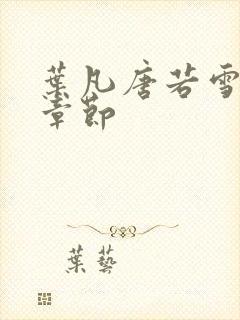 葉凡唐若雪
章節
葉藝